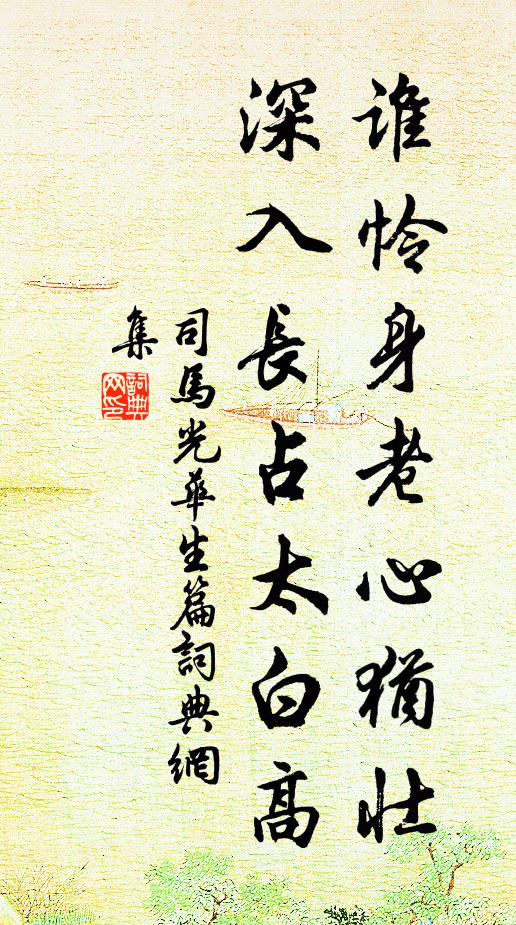 谁怜身老心犹壮
深入長占太白高
司馬光華生篇詞典網
集
詞典
网印